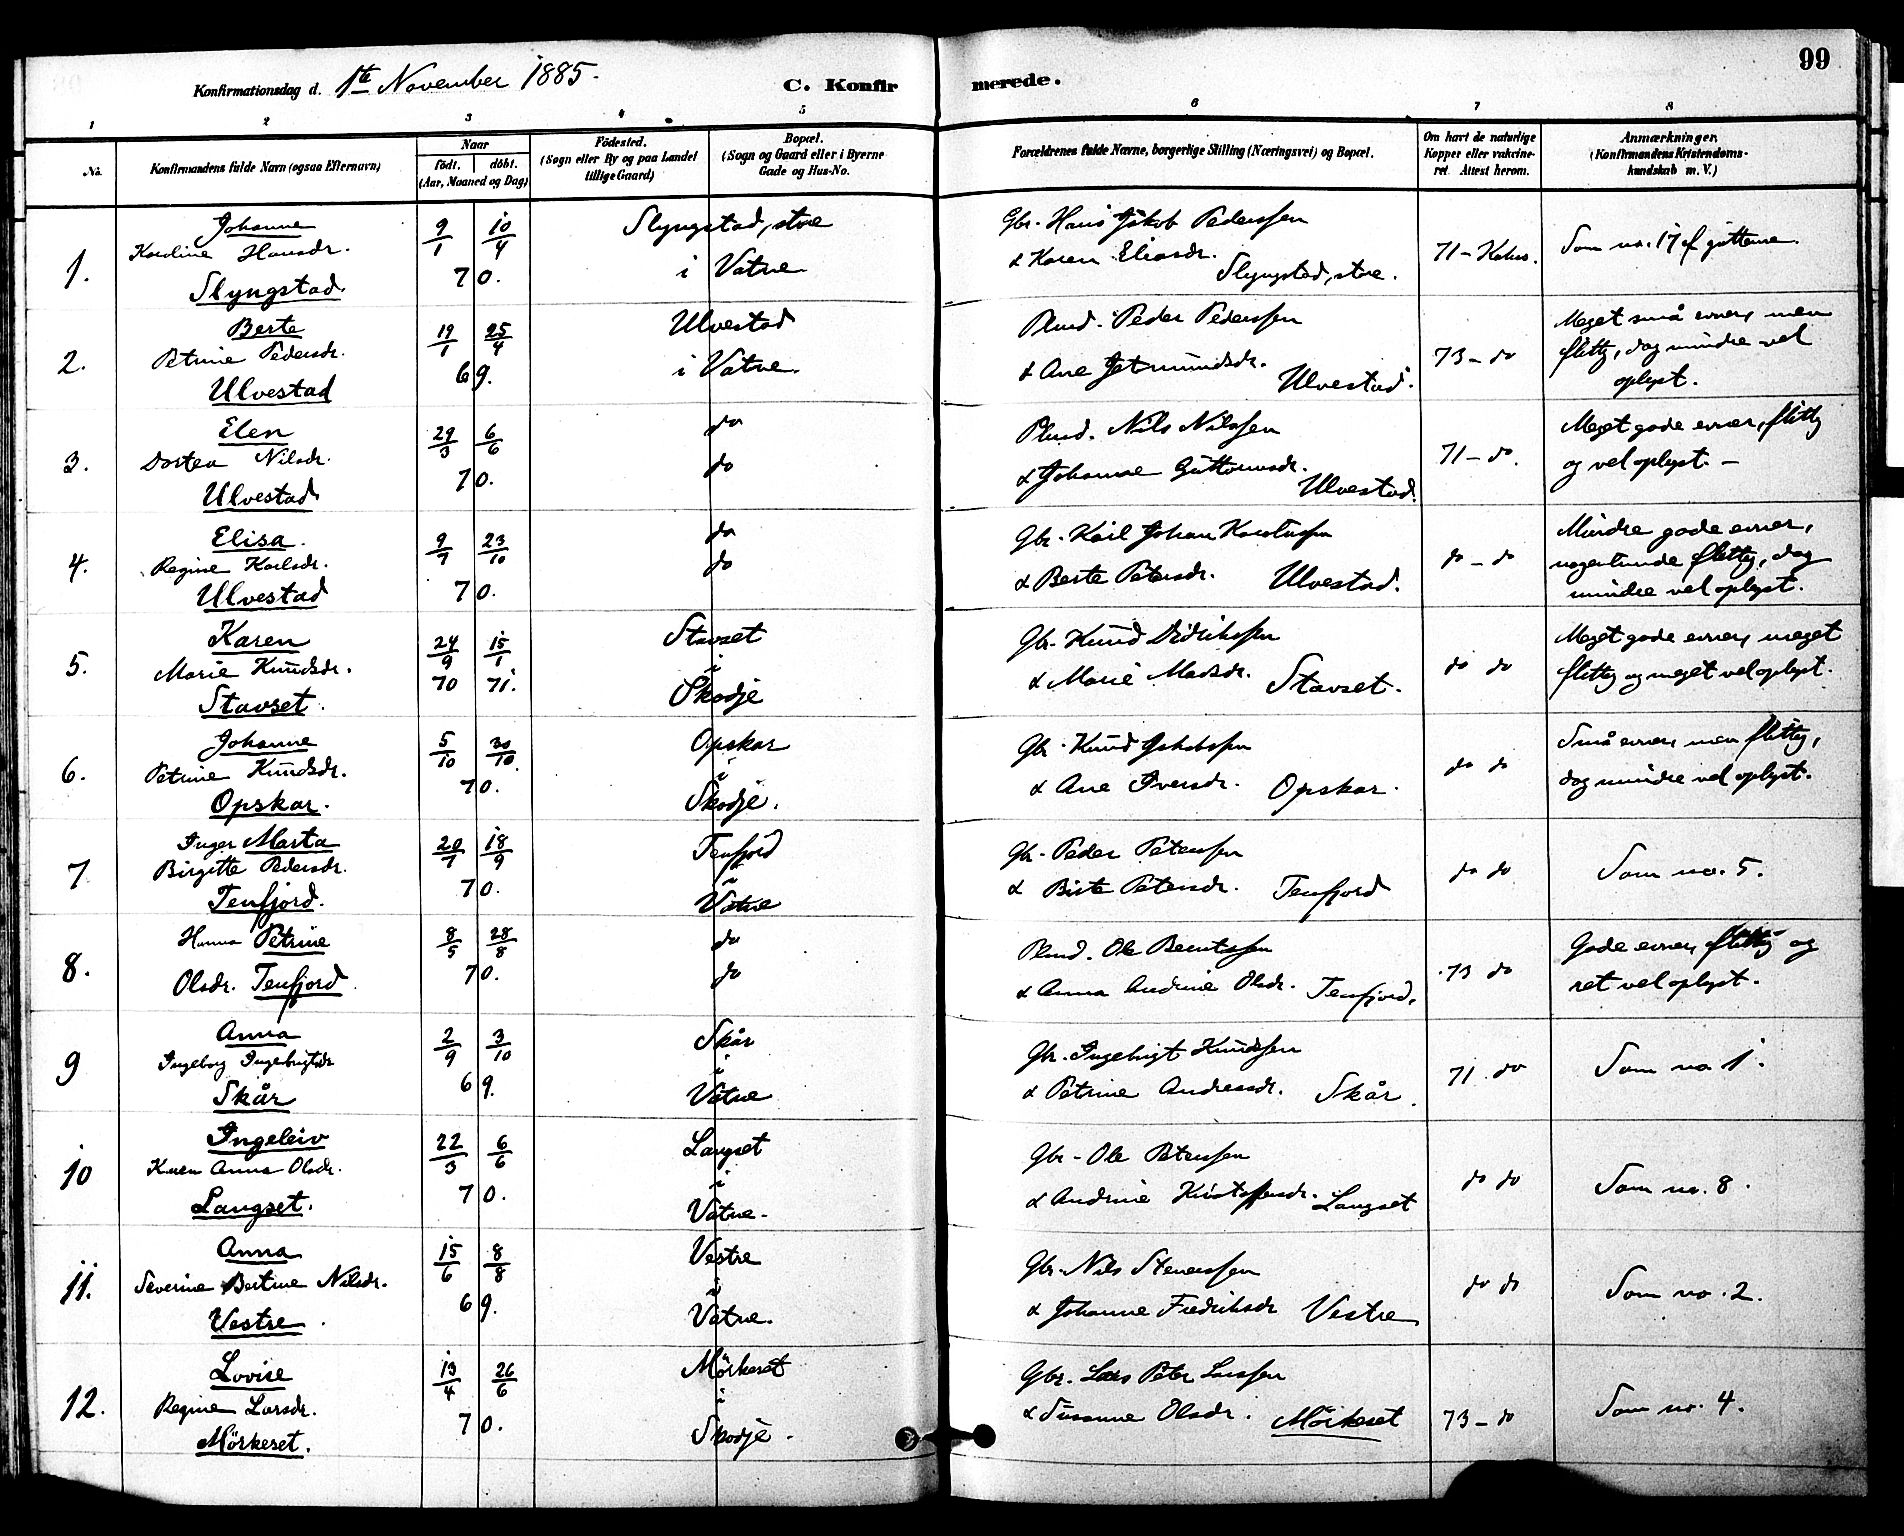 99
Konfirmationsdag d. 1ste November 1885.
C. Konfirmerede.
1 2 3 4 5 6 7 8
No.
Konfirmandens fulde Navn (ogsaa Efternavn)
Naar
födt. döbt.
(Aar, Maaned og Dag)
Födested.
(Sogn eller By og paa Landet
tillige Gaard)
Bopæl.
(Sogn og Gaard eller i Byerne
Gade og Hus-No.
Forældrenes fulde Navne, borgerlige Stilling (Næringsvei) og Bopæl.
Om havt de naturlige
Kopper eller vakcine-
ret. Attest herom.
Anmærkninger.
(Konfirmandens Kristendoms-
kundskab m. V.)
1.
Johanne
Karoline Hansdr.
Slyngstad.
9/1 10/4
70.
Slyngstad, store
i Vatne.
Gbr. Hans Jakob Pedersen
& Karen Eliasdr. Slyngstad, store.
71 -
Som no. 17 af gutterne.
2.
Berte
Petrine Pedersdr.
Ulvestad
19/1 25/4
69.
Ulvestad
i Vatne.
Plmd. Peder Pederssen
& Ane Jetmundsdr. Ulvestad.
73 - do
Meget små evner, men
flittig, dog mindre vel
oplyst.
3.
Elen
Dortea Nilsdr.
Ulvestad
29/3 6/6
70.
do
do
Plmd. Nils Nilssen
& Johanne Guttormsdr. Ulvestad.
71 - do.
Meget gode evner, flittig
og vel oplyst. -
4.
Elisa.
Regine Karlsdr.
Ulvestad
9/7 23/10
70.
do
do
Gbr. Karl Johan
& Berte Petersdr. Ulvestad.
do - do
Mindre gode evner,
nogenlunde flittig, dog
mindre vel oplyst.
5.
Karen
Marie Knudsdr.
Stavset.
24/9 15/1
70 71.
Stavset
i
Skodje
Gbr. Knud Didrikssen
& Marie Madsdr. Stavset.
do do
Meget gode evner, meget
flittig og meget vel oplyst.
6.
Johanne
Petrine Knudsdr.
Opskar.
5/10 30/10
70.
Opskar
i
Skodje.
Gbr. Knud Jakobssen
& Ane Iversdr. Opskar.
do do
Små evner, men flittig,
dog mindre vel oplyst.
7
Inger Marta
Birgitte Pedersdr.
Tenfjord.
20/7 18/9
70.
Tenfjord
i
Vatne
Gbr. Peder Peterssen
& Birte Petersdr. Tenfjord
do do
Som no. 5.
8.
Hanna Petrine
Olsdr. Tenfjord
8/5 28/8
70.
do
do
Plmd. Ole Berntssen
& Anna Andrine Olsdr. Tenfjord.
73 do
Gode evner, flittig og
ret vel oplyst.
9
Anna
Ingeborg Ingebrigtsdr
Skår
2/9 3/10
69.
Skår
i
Vatne
Gbr. Ingebrigt Knudssen
& Petrine Andreasdr. Skår.
71. do
Som no 1.
10
Ingeleiv
Karen Anna Olsdr.
Langset.
22/3 6/6
70.
Langset
i
Vatne.
Gbr. Ole Peterssen
& Andrine Kristoffersdr. Langset
do do
Som no. 8.
11.
Anna
Severine Bertine Nilsdr.
Vestre.
15/6 8/8
69.
Vestre
i
Vatne.
Gbr. Nils Stenerssen
& Johanne Fredriksdr Vestre
do do
Som no. 2.
12.
Lovise
Regine Larsdr.
Mörkeset.
13/4 26/6
70.
Mörkeset
i
Skodje.
Gbr. Lars Peter Larssen
& Susanne Olsdr. Mörkeset
73 - do
Som no. 4.